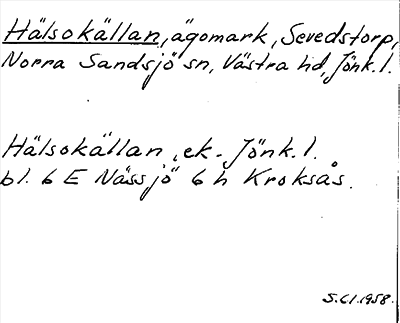 Hälsokällan, ägomark, Sevedstorp,
Norra Sandsjö sn, Västra hd, Jönk.l.
Hälsokällan, ek. Jönk.l.
bl. 6 E Nässjö 6 h Kroksås.
S.Cl.1958.